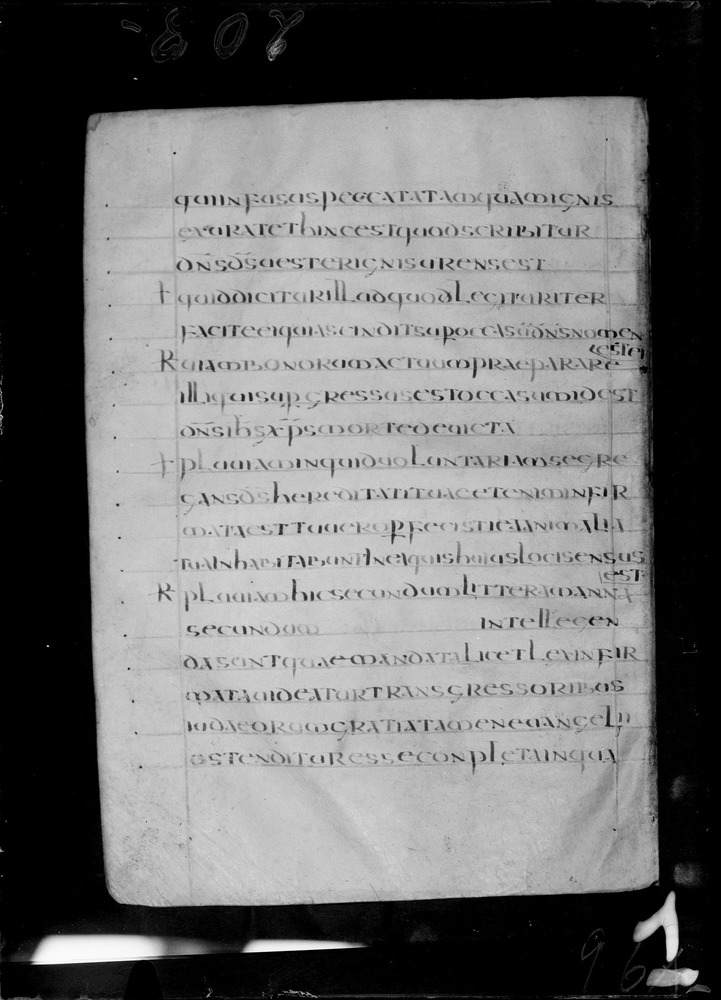 208-
quiinfususpeccatatamquamignis
exuratethincestquodscribitur
dnsdsuesterignisurensest
quiddiciturilludquodlegituriter
faciteeiquiascenditsupoccasudnsnomen
estei
R quiambonorumactuumpraeparare
illiquisupgressusestoccasumidest
dnsihsxpsmortedeuicta
pluuiaminquiduoluntariamsegre
gansdshereditatituaeeteniminfir
mataesttuueropfecistieaanimalia
tuainhabitabuntineaquishuiuslocisensus
est
R pluuiamhicsecundumlitteramanna
secundum intellegen
dasuntquaemandatalicetlexinfir
matauideaturtransgressoribus
iudaeorumgratiatameneuangelii
ostendituresseconpletainqua
1